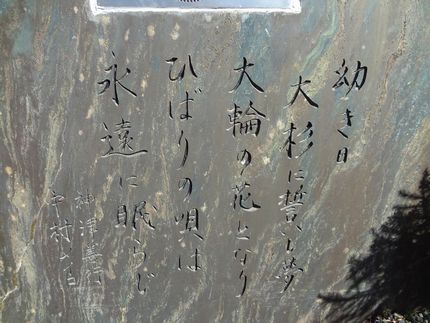 幼き日
大杉に誓いし夢
大輪の花となり
ひばりの唄は
永遠に眠らじ
神津善行
中村メイコ